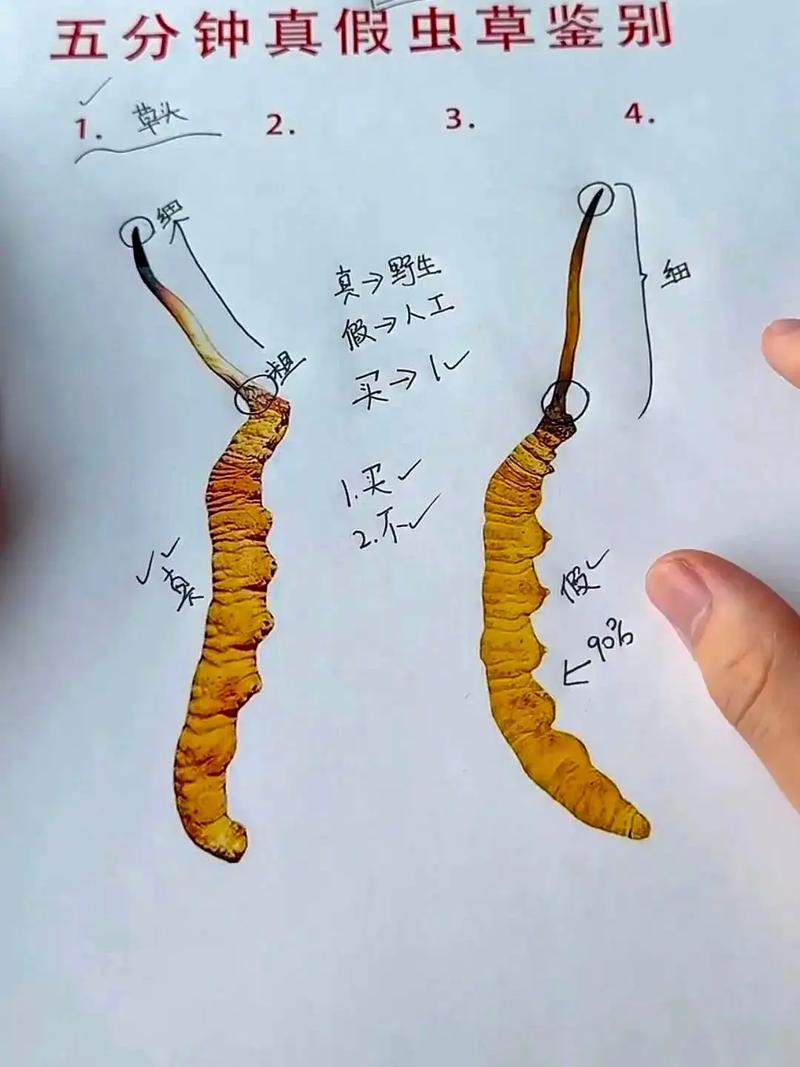 五分钟真假虫草鉴别
1. 草头
2.
3.
4.
细
粗
真→野生
假→人工
买→1✓
1.买✓
2.不✓
真
细
假✓
90%